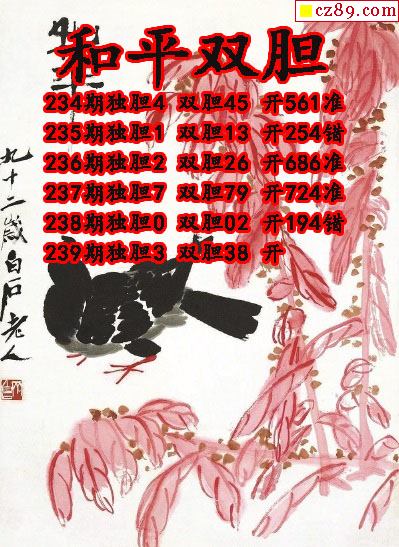 cz89.com
和平双胆
234期独胆4 双胆45 开561准
235期独胆1 双胆13 开254错
236期独胆2 双胆26 开686准
237期独胆7 双胆79 开724准
238期独胆0 双胆02 开194错
239期独胆3 双胆38 开
九十二岁白石老人